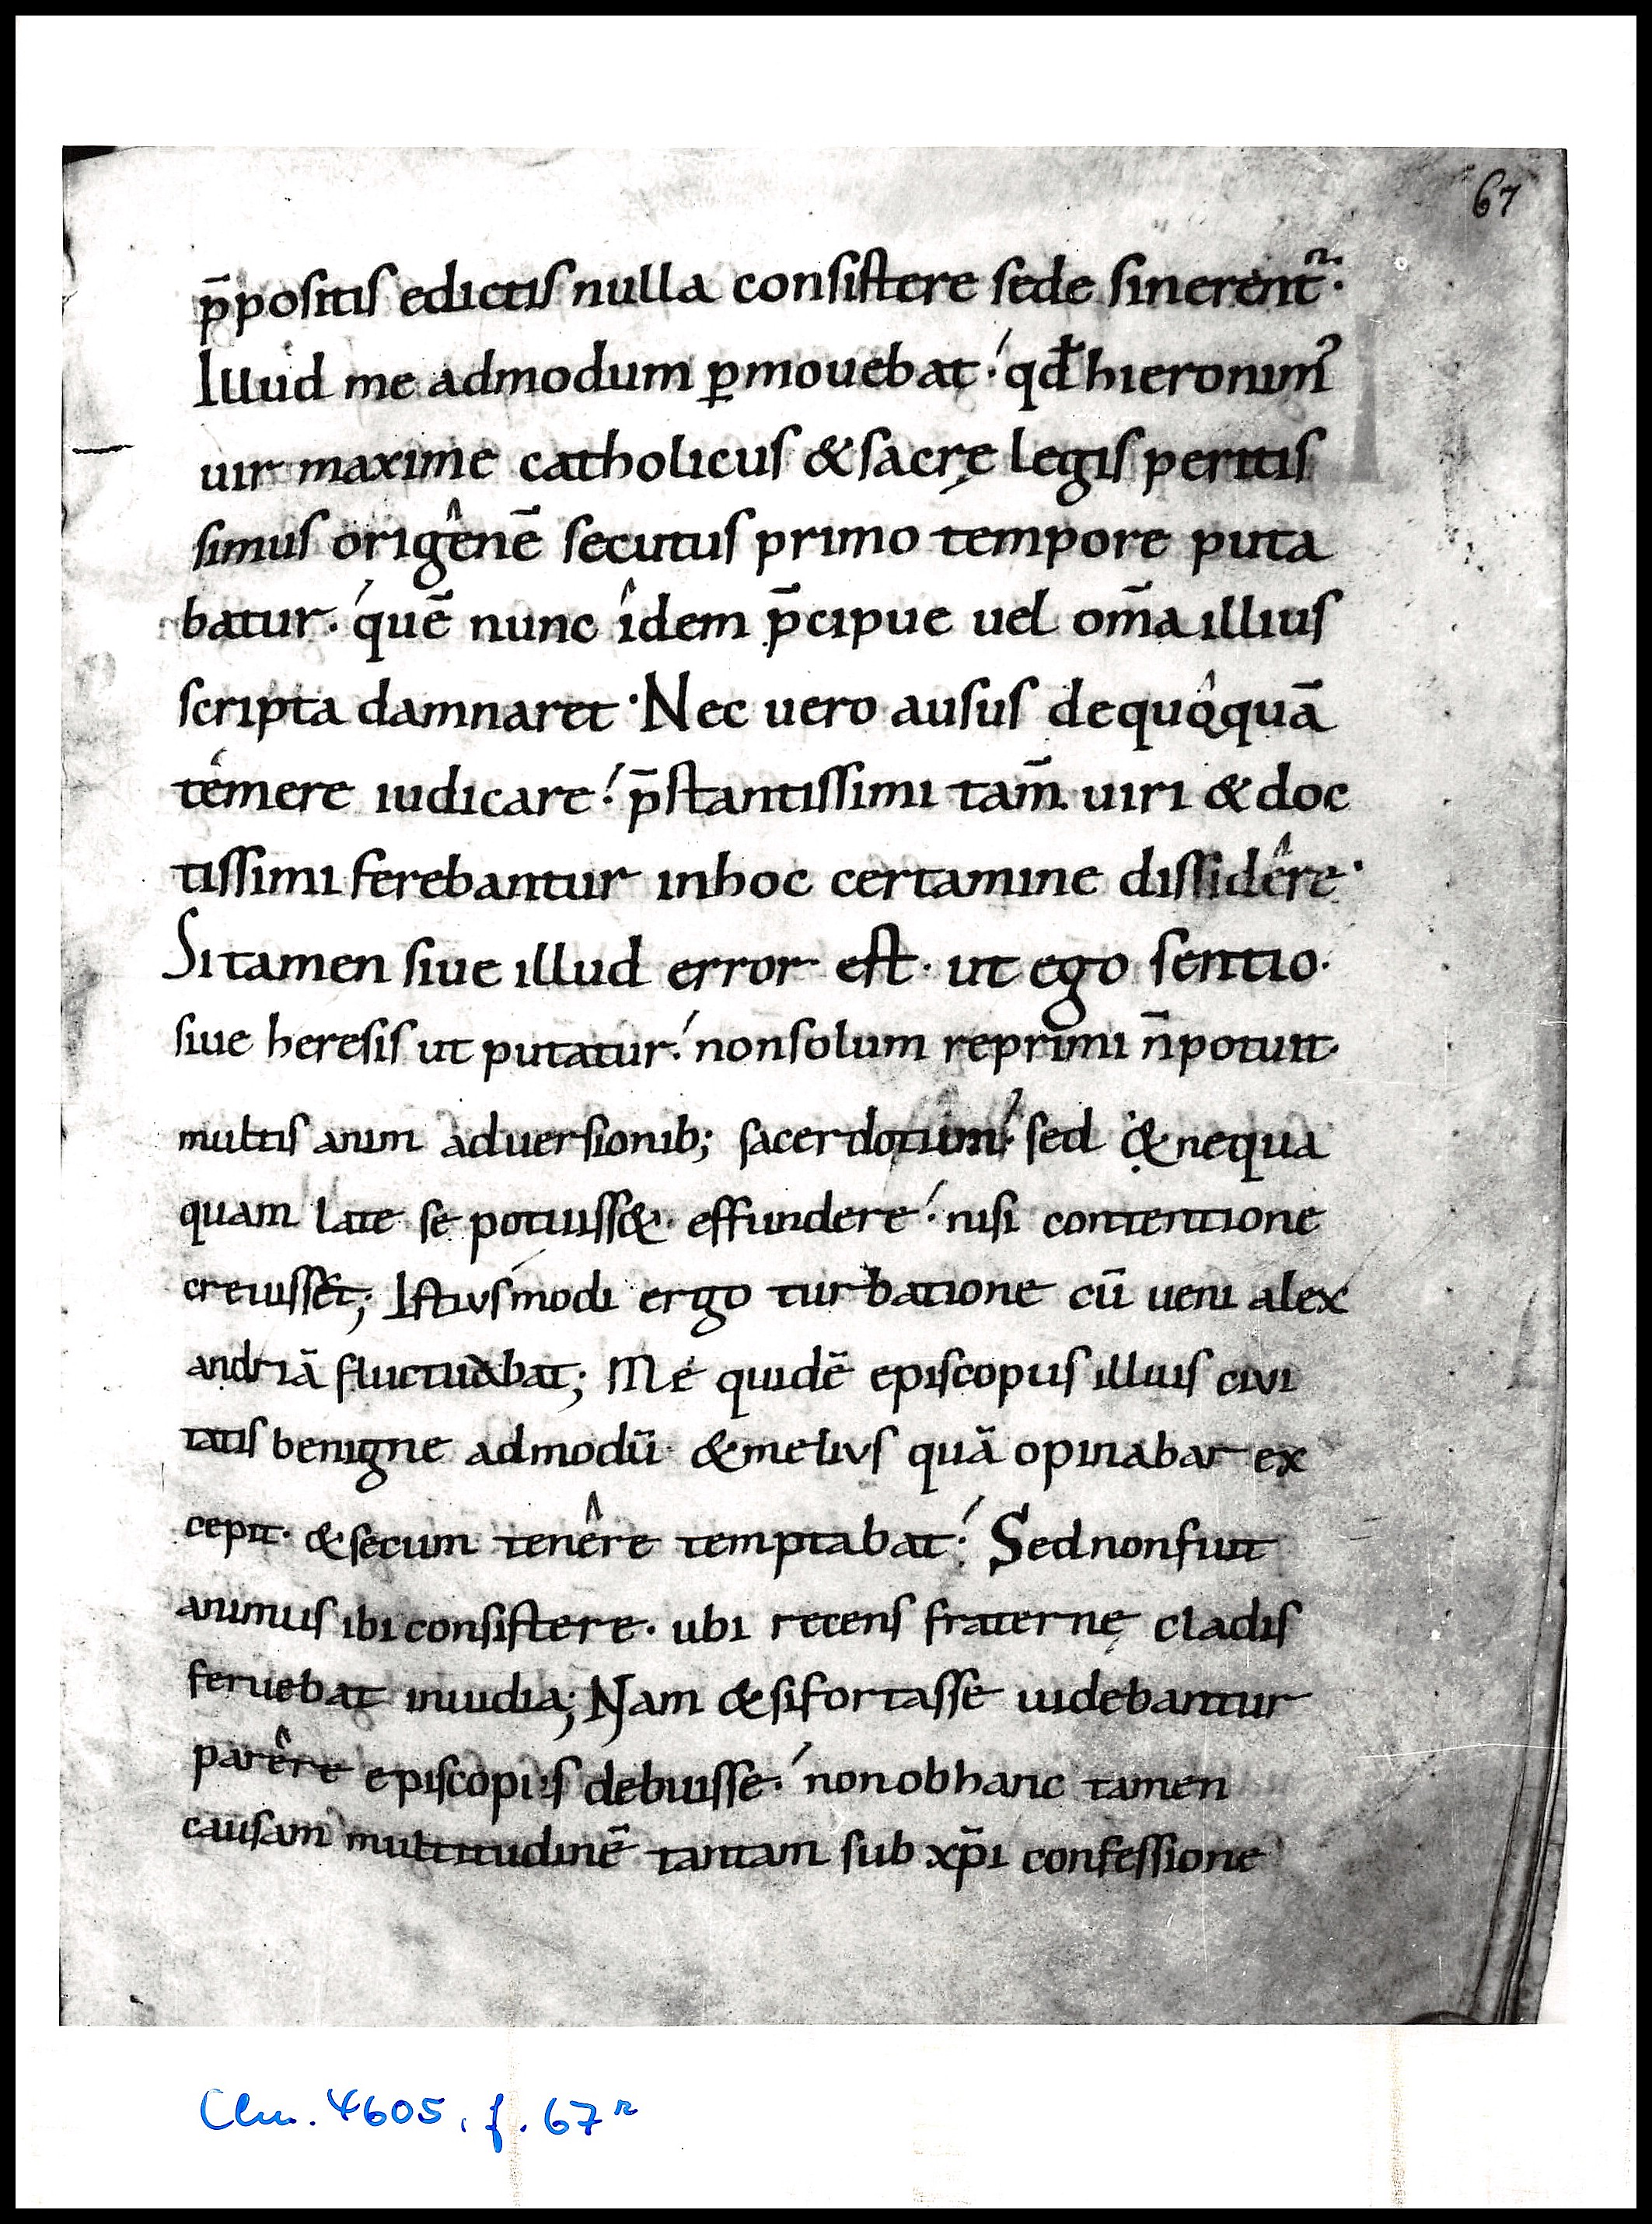 67
p̄positis edictis nulla consistere sede sinerent᷑·
Illud me admodum ꝑmouebat·́ qđ hieronimꝰ
uir maxime catholicus & sacrę legis peritis
simus origênē secutus primo tempore puta
batur·́ quē nunc îdem p̄cipue uel om̄a illius
scripta damnaret · Nec uero ausus dequôquā
témere iudicare·́ p̄stantissimi tam̄ uiri & doc
tissimi ferebantur inhoc certamine dissidêre·
Si tamen siue illud error est · ut ego sentio·
siue heresis ut putatur·́ nonsolum reprimi n̄potuit·
multis anim aduersionib; sacerdotum·́ sed & nequa
quam late se potuiss&· effundere·́ nisi contentione
creuisset; Istiusmodi ergo turbatione cū ueni alex
andriā fluctuabat; Me quidē episcopus illius civi
tatis benigne admodū · & melius quā opinabar ex
cepit· & secum tenêre temptabat·́ Sed non fuit
animus ibi consistere· ubi recens fraternę cladis
feruebat inuidia; Nam & si fortasse uidebantur
parêre episcopis debuisse·́ non ob hanc tamen
causam multitudinē tantam sub xp̄i confessione
Clm. 4605, f. 67ʳ